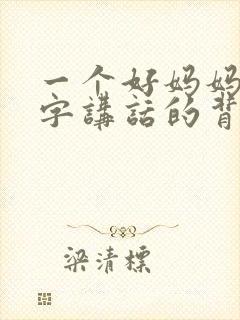 一个好妈妈
字講話的背
梁清標